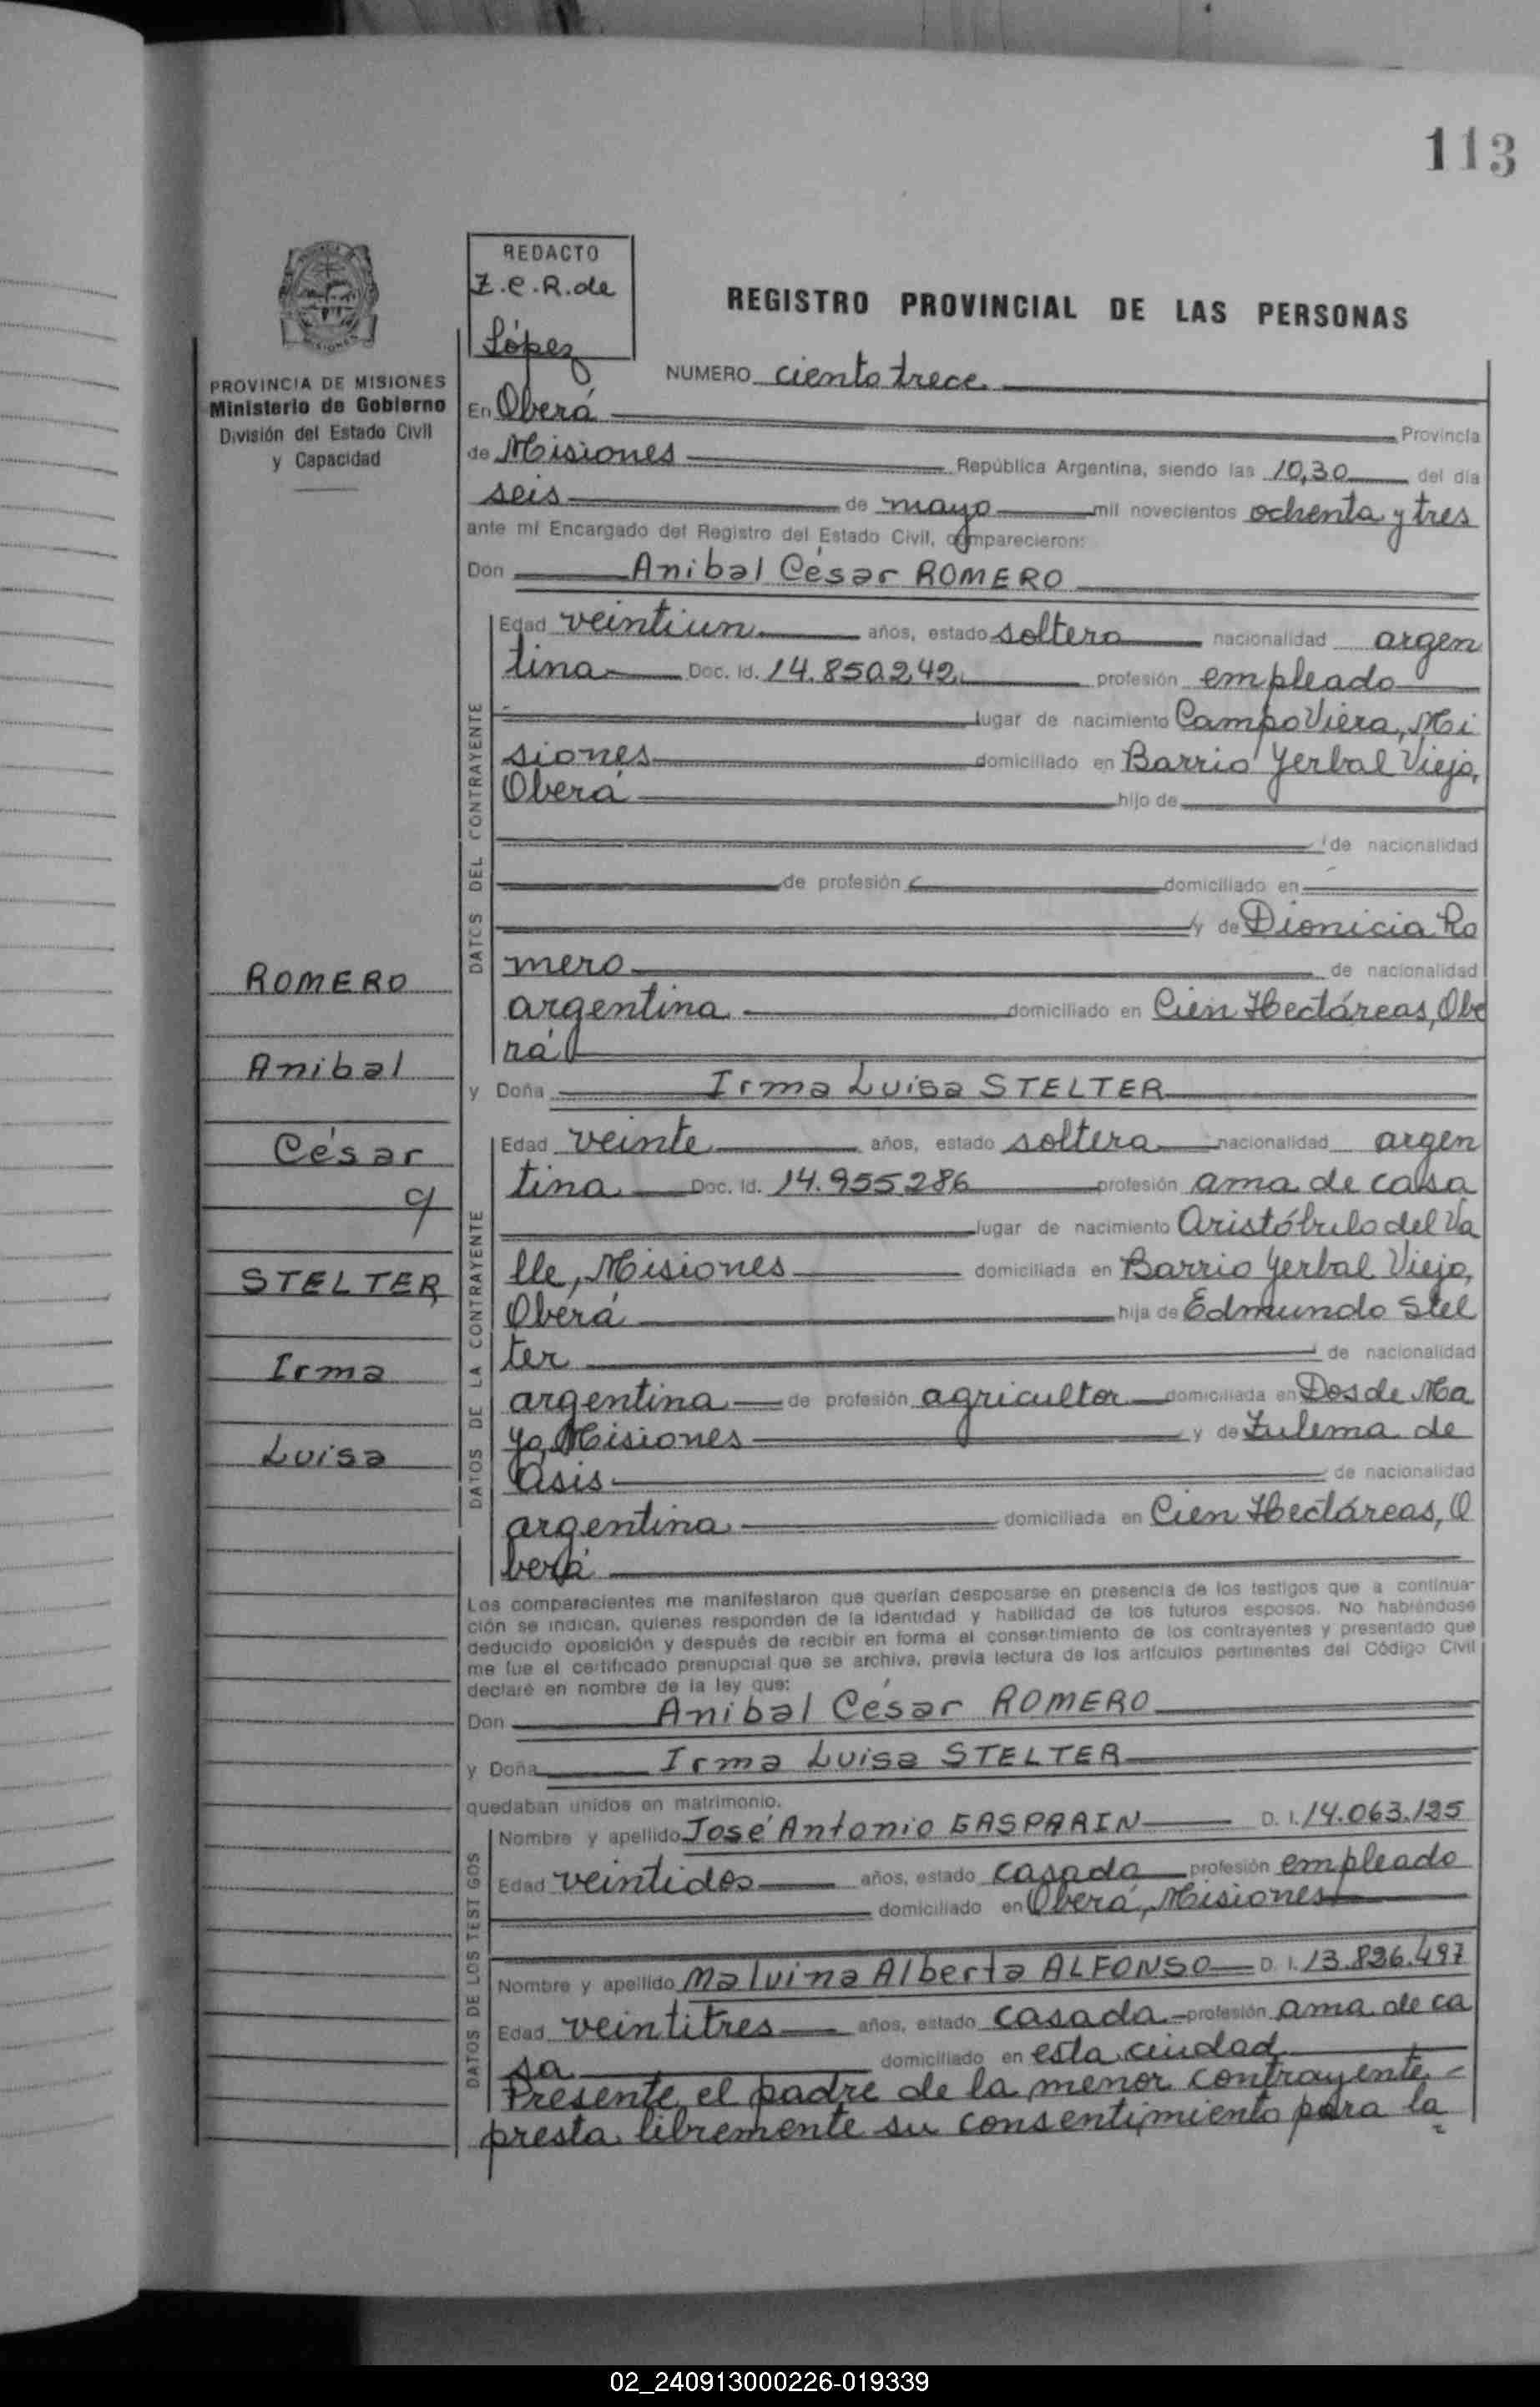 113
REDACTO
Z.C.R. de
López
REGISTRO PROVINCIAL DE LAS PERSONAS
PROVINCIA DE MISIONES
Ministerio de Gobierno
División del Estado Civil
y Capacidad
MISIONES
NUMERO ciento trece
En Oberá Provincia
de Misiones República Argentina, siendo las 10,30 del día
seis de mayo mil novecientos ochenta y tres
ante mí Encargado del Registro del Estado Civil, comparecieron:
Don Anibal César ROMERO
DATOS DEL CONTRAYENTE
Edad veintiun años, estado soltero nacionalidad argen
tina Doc. Id. 14.850.242 profesión empleado
lugar de nacimiento Campo Viera, Mi
siones domiciliado en Barrio Yerbal Viejo,
Oberá hijo de
de nacionalidad
de profesión domiciliado en
y de Dionicia Ro
mero de nacionalidad
argentina domiciliado en Cien Hectáreas, Obe
rá
y Doña Irma Luisa STELTER
DATOS DE LA CONTRAYENTE
Edad veinte años, estado soltera nacionalidad argen
tina Doc. Id. 14.955.286 profesión ama de casa
lugar de nacimiento Aristóbulo del Va
lle, Misiones domiciliada en Barrio Yerbal Viejo,
Oberá hija de Edmundo Stel
ter de nacionalidad
argentina de profesión agricultor domiciliada en Dos de Ma
yo, Misiones y de Zulema de
Asis de nacionalidad
argentina domiciliada en Cien Hectáreas, O
berá
ROMERO
Anibal
César
y
STELTER
Irma
Luisa
Los comparecientes me manifestaron que querían desposarse en presencia de los testigos que a continua-
ción se indican, quienes responden de la identidad y habilidad de los futuros esposos. No habiéndose
deducido oposición y después de recibir en forma el consentimiento de los contrayentes y presentado que
me fue el certificado prenupcial que se archiva, previa lectura de los artículos pertinentes del Código Civil
declaré en nombre de la ley que:
Don Anibal César ROMERO
y Doña Irma Luisa STELTER
quedaban unidos en matrimonio.
DATOS DE LOS TESTIGOS
Nombre y apellido José Antonio GASPARIN D. I. 14.063.125
Edad veintidos años, estado casado profesión empleado
domiciliado en Oberá, Misiones
Nombre y apellido Malvina Alberta ALFONSO D. I. 13.826.497
Edad veintitres años, estado casada profesión ama de ca
sa domiciliado en esta ciudad
Presente el padre de la menor contrayente
presta libremente su consentimiento para la
02_240913000226-019339